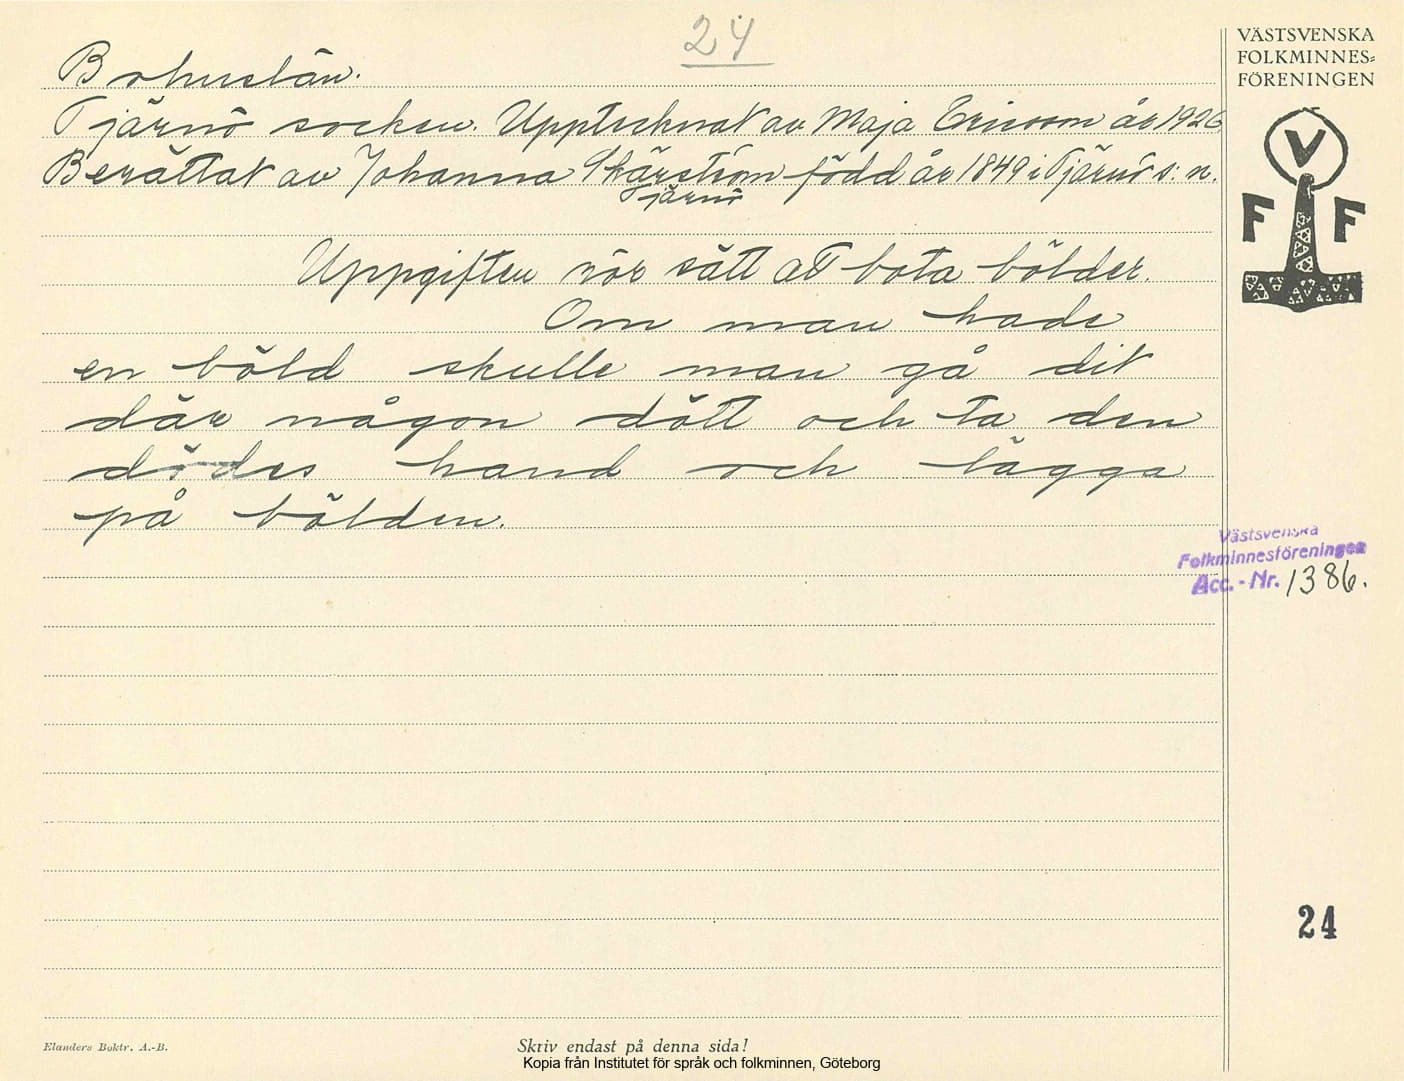 24
VÄSTSVENSKA
FOLKMINNES=
FÖRENINGEN
V
F F
Bohuslän.
Tjärnö socken. Upptecknat av Maja Ericson år 1926
Berättat av Johanna Skärström född år 1849 i Tjärnö s:n.
Tjärnö
Uppgiften rör sätt att bota bölder.
Om man hade
en böld skulle man gå dit
där någon dött och ta den
dödes hand och lägga
på bölden.
Västsvenska
Folkminnesföreningen
Acc.-Nr. 1386.
24
Elanders Boktr. A.-B.
Skriv endast på denna sida!
Kopia från Institutet för språk och folkminnen, Göteborg